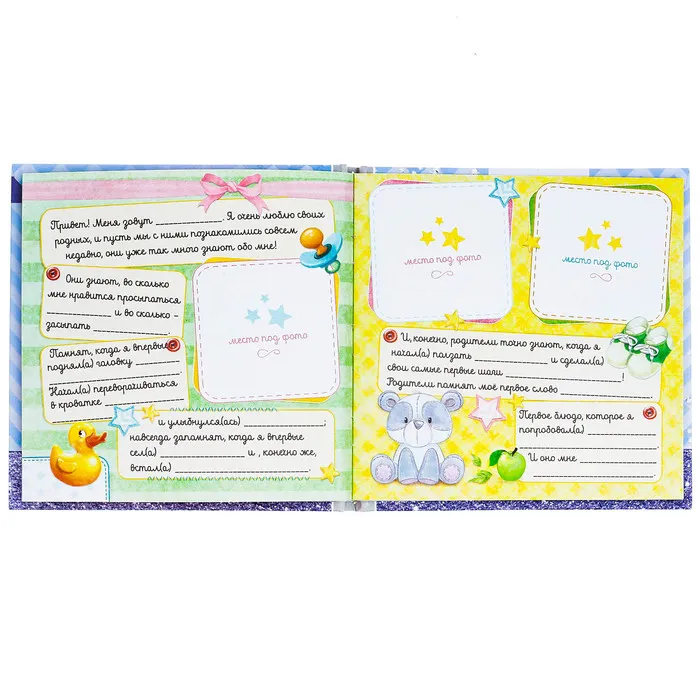 Привет! Меня зовут ____________. Я очень люблю своих
родных, и пусть мы с ними познакомились совсем
недавно, они уже так много знают обо мне!
Они знают, во сколько
мне нравится просыпаться
____________ и во сколько -
засыпать ____________.
место под фото
Помнят, когда я впервые
поднял(а) головку ____________.
Начал(а) переворачиваться
в кроватке ____________
и улыбнулся(ась) ____________;
навсегда запомнят, когда я впервые
сел(а) ____________ и , конечно же,
встал(а) ____________.
место под фото
место под фото
И, конечно, родители точно знают, когда я
начал(а) ползать ____________ и сделал(а)
свои самые первые шаги ____________!
Родители помнят мое первое слово ____________.
Первое блюдо, которое я
попробовал(а) ____________
____________. И оно мне ____________
____________.